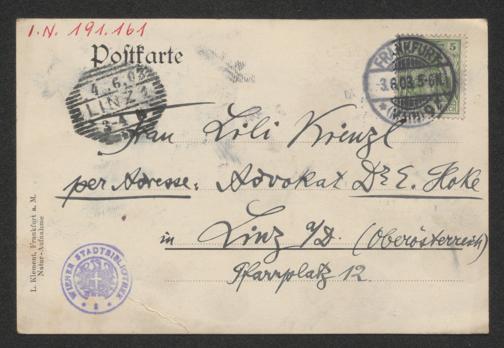 I.N. 191.161
Postkarte
FRANKFURT
3.6.03. 5-6N.
(MAIN)
5
4.6.03
LINZ 1
3-4
Frau Lili Kienzl
per Adresse: Advokat Dr E. Hoke
in Linz a/D. (Oberösterreich)
Pfarrplatz 12.
L. Klement, Frankfurt a. M.
Natur-Aufnahme
WIENER STADTBIBLIOTHEK